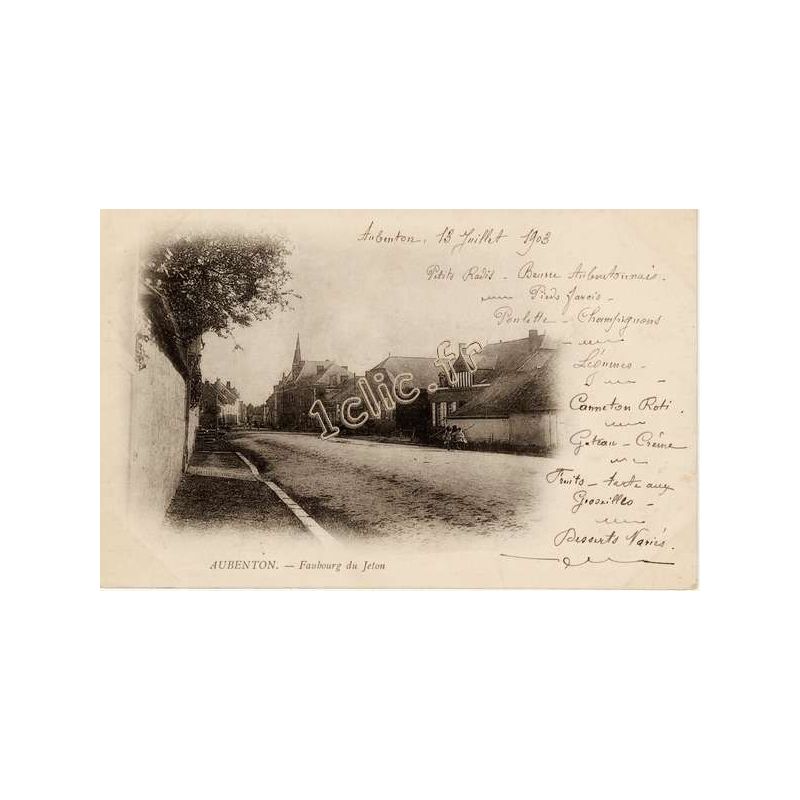 Aubenton, 13 Juillet 1903
Petits Radis - Beurre Aubentonnais -
Pieds farcis -
Poulette - Champignons
Légumes -
Canneton Roti.
Gateau - Crème
Fruits - tarte aux
Groseilles -
Desserts Variés.
1clic.fr
AUBENTON. — Faubourg du Jeton